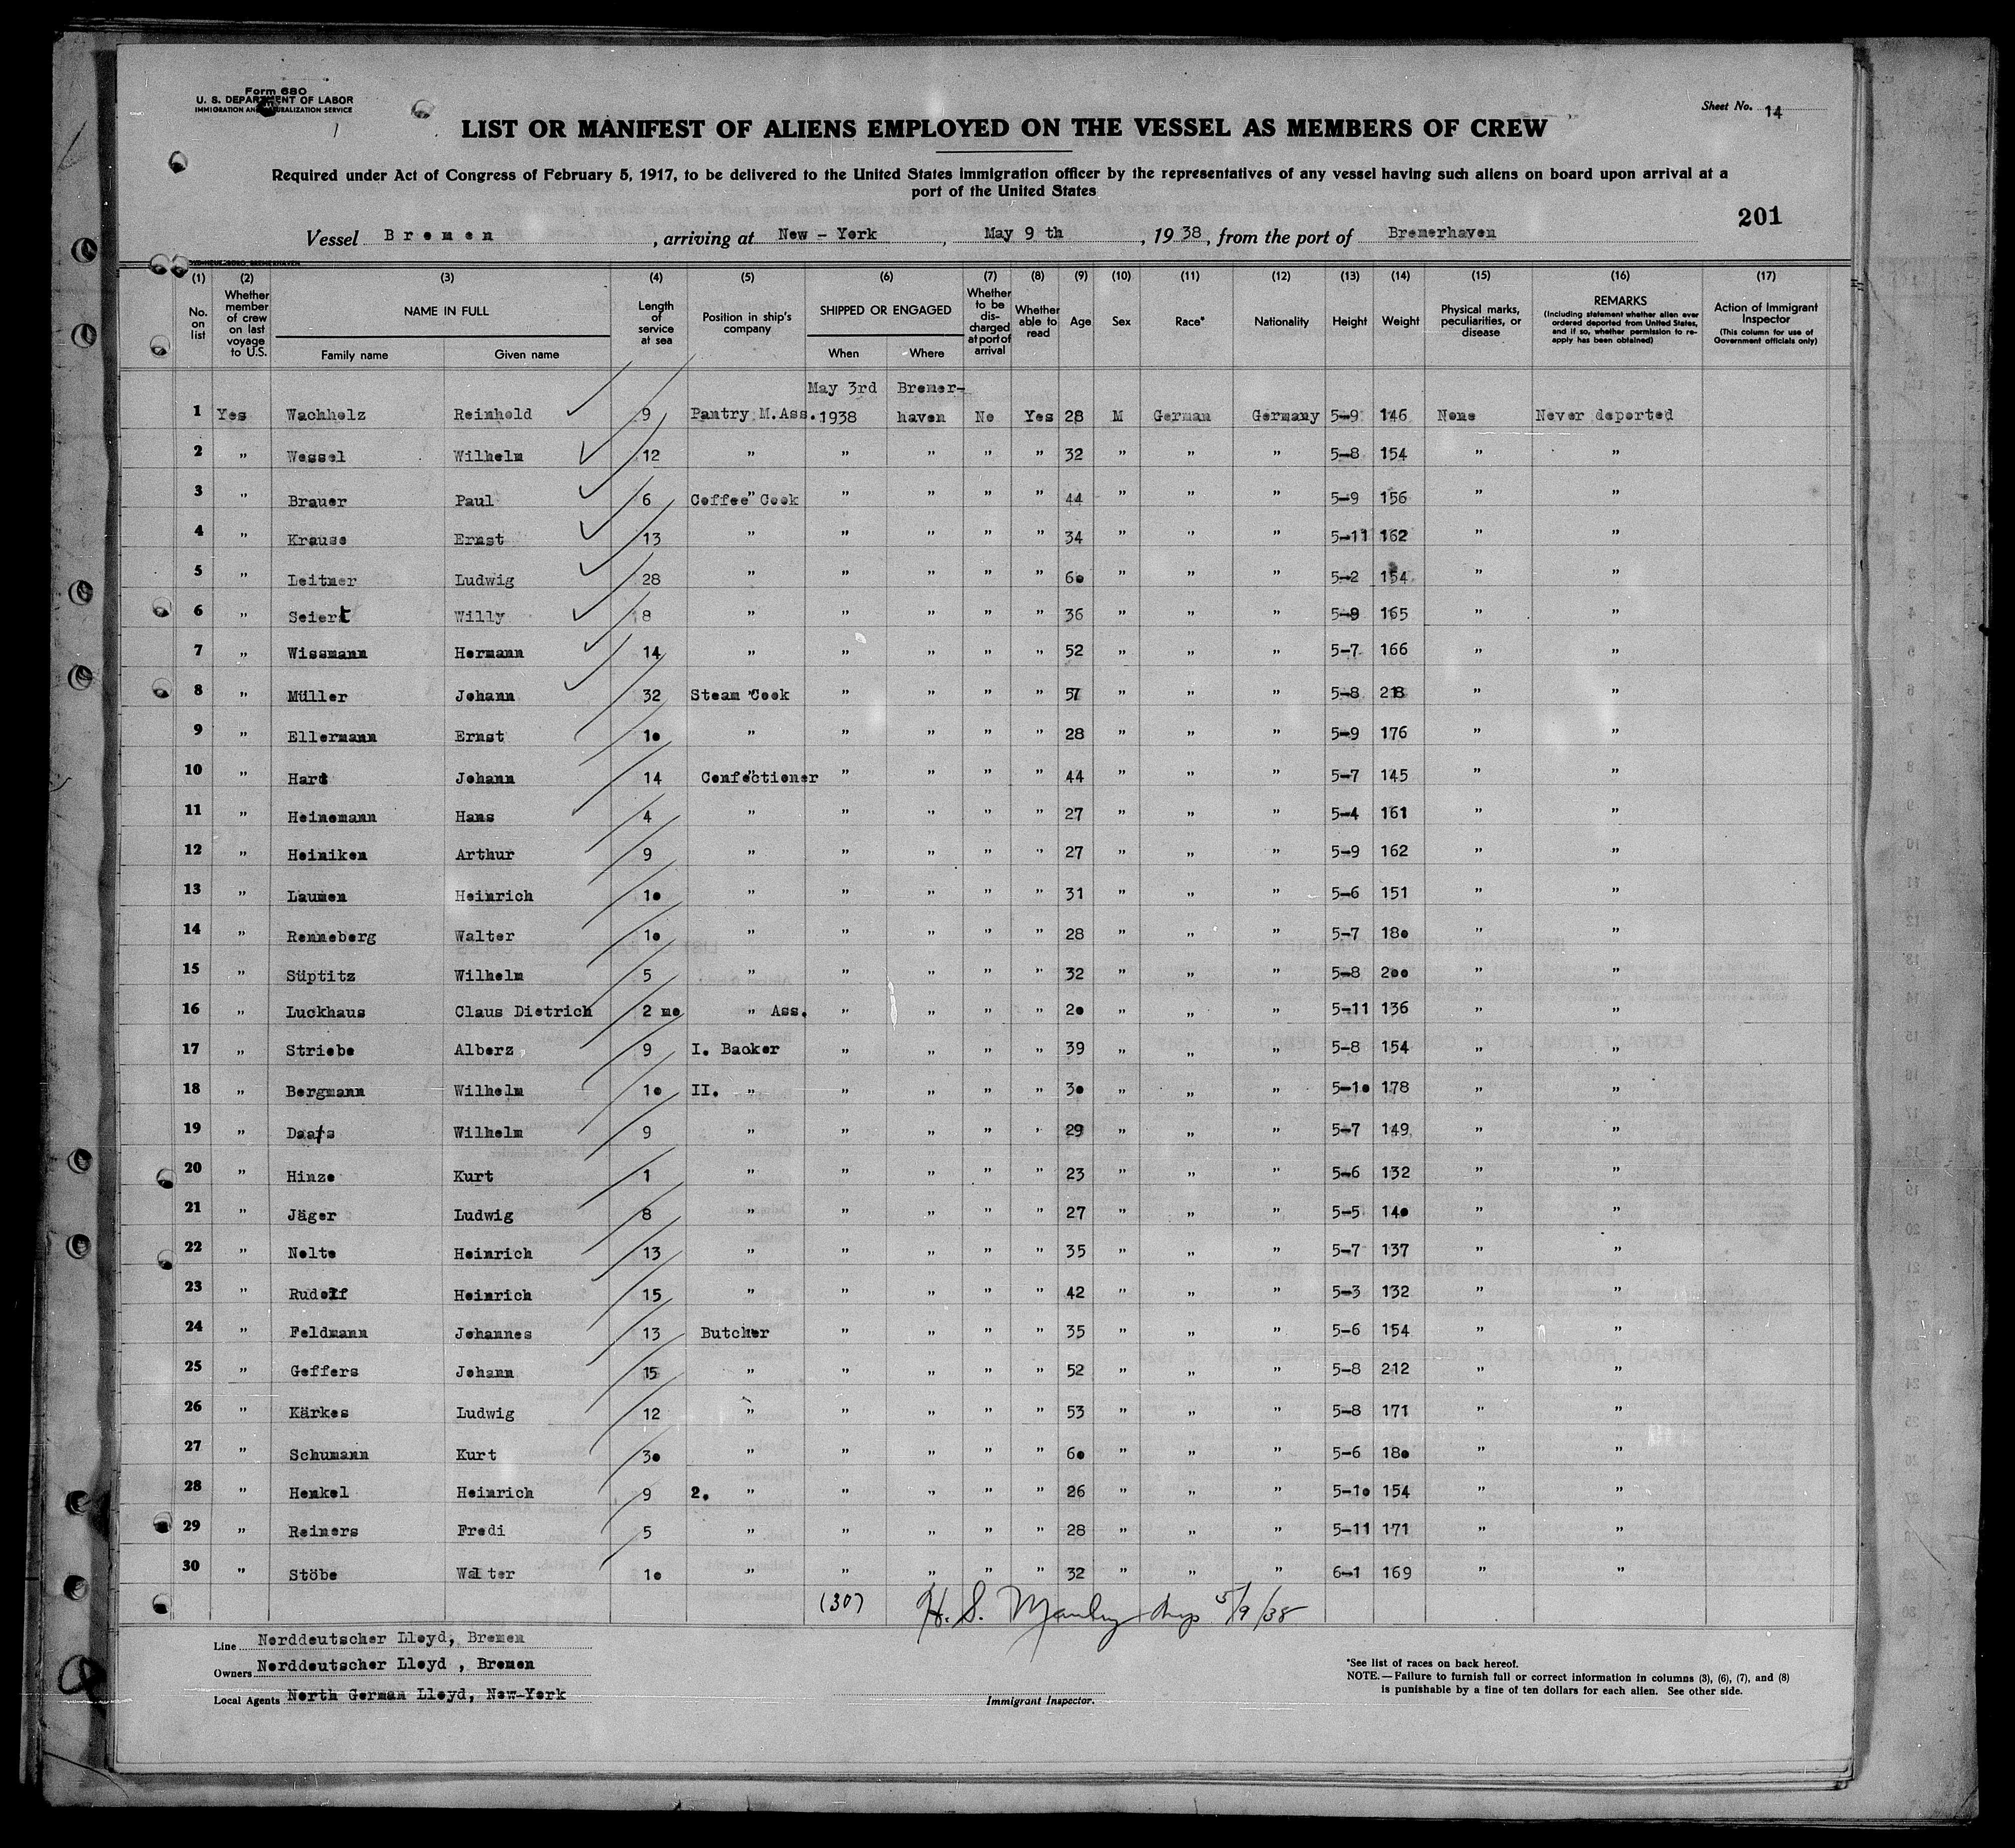 Form 680
U. S. DEPARTMENT OF LABOR
IMMIGRATION AND NATURALIZATION SERVICE
Sheet No. 14
LIST OR MANIFEST OF ALIENS EMPLOYED ON THE VESSEL AS MEMBERS OF CREW
Required under Act of Congress of February 5, 1917, to be delivered to the United States immigration officer by the representatives of any vessel having such aliens on board upon arrival at a
port of the United States
201
Vessel Bremen, arriving at New-York, May 9 th, 1938, from the port of Bremerhaven
(1) (2) (3) (4) (5) (6) (7) (8) (9) (10) (11) (12) (13) (14) (15) (16) (17)
No. on list
Whether member of crew on last voyage to U.S.
NAME IN FULL
Family name Given name
Length of service at sea
Position in ship's company
SHIPPED OR ENGAGED
When Where
Whether to be discharged at port of arrival
Whether able to read
Age
Sex
Race*
Nationality
Height
Weight
Physical marks, peculiarities, or disease
REMARKS
(Including statement whether alien ever ordered deported from United States, and if so, whether permission to re-apply has been obtained)
Action of Immigrant Inspector
(This column for use of Government officials only)
May 3rd Bremer-
1 Yes Wachholz Reinhold 9 Pantry M.Ass. 1938 haven No Yes 28 M German Germany 5-9 146 None Never deported
2 " Wessel Wilhelm 12 " " " " " 32 " " " 5-8 154 " "
3 " Brauer Paul 6 Coffee Cook " " " " 44 " " " 5-9 156 " "
4 " Krause Ernst 13 " " " " " 34 " " " 5-11 162 " "
5 " Leitner Ludwig 28 " " " " " 60 " " " 5-2 154 " "
6 " Seiert Willy 8 " " " " " 36 " " " 5-9 165 " "
7 " Wissmann Hermann 14 " " " " " 52 " " " 5-7 166 " "
8 " Müller Johann 32 Steam Cook " " " " 57 " " " 5-8 218 " "
9 " Ellermann Ernst 10 " " " " " 28 " " " 5-9 176 " "
10 " Hard Johann 14 Confectioner " " " " 44 " " " 5-7 145 " "
11 " Heinemann Hans 4 " " " " " 27 " " " 5-4 161 " "
12 " Heiniken Arthur 9 " " " " " 27 " " " 5-9 162 " "
13 " Laumen Heinrich 10 " " " " " 31 " " " 5-6 151 " "
14 " Renneberg Walter 10 " " " " " 28 " " " 5-7 180 " "
15 " Süptitz Wilhelm 5 " " " " " 32 " " " 5-8 200 " "
16 " Luckhaus Claus Dietrich 2 mo " Ass. " " " " 20 " " " 5-11 136 " "
17 " Striebe Alberz 9 I. Backer " " " " 39 " " " 5-8 154 " "
18 " Bergmann Wilhelm 10 II. " " " " " 30 " " " 5-10 178 " "
19 " Daats Wilhelm 9 " " " " " 29 " " " 5-7 149 " "
20 " Hinze Kurt 1 " " " " " 23 " " " 5-6 132 " "
21 " Jäger Ludwig 8 " " " " " 27 " " " 5-5 140 " "
22 " Nolte Heinrich 13 " " " " " 35 " " " 5-7 137 " "
23 " Rudolf Heinrich 15 " " " " " 42 " " " 5-3 132 " "
24 " Feldmann Johannes 13 Butcher " " " " 35 " " " 5-6 154 " "
25 " Geffers Johann 15 " " " " " 52 " " " 5-8 212 " "
26 " Kärkes Ludwig 12 " " " " " 53 " " " 5-8 171 " "
27 " Schumann Kurt 30 " " " " " 60 " " " 5-6 180 " "
28 " Henkel Heinrich 9 2. " " " " " 26 " " " 5-10 154 " "
29 " Reiners Fredi 5 " " " " " 28 " " " 5-11 171 " "
30 " Stöbe Walter 10 " " " " " 32 " " " 6-1 169 " "
(30) H. S. 5/9/38
Line Norddeutscher Lloyd, Bremen
Owners Norddeutscher Lloyd , Bremen
Local Agents North German Lloyd, New-York
Immigrant Inspector.
*See list of races on back hereof.
NOTE.—Failure to furnish full or correct information in columns (3), (6), (7), and (8)
is punishable by a fine of ten dollars for each alien. See other side.